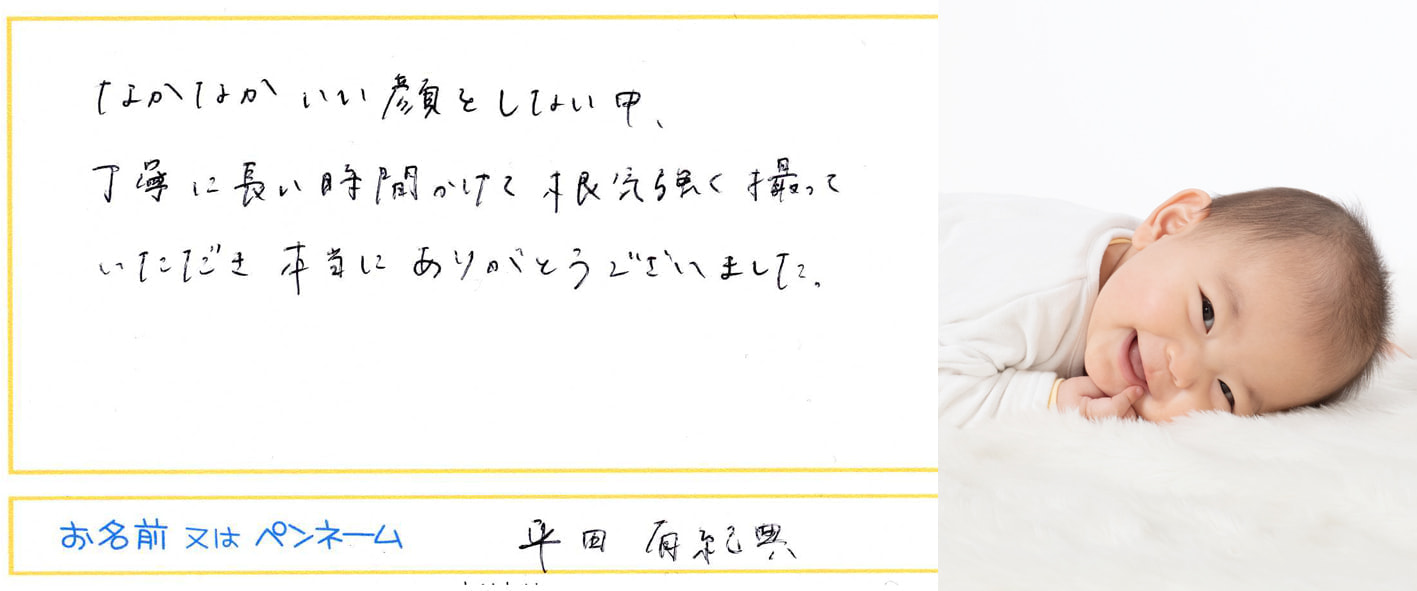 なかなかいい顔をしない中、
丁寧に長い時間かけて根気強く撮って
いただき本当にありがとうございました。
お名前又はペンネーム 平田 有紀典